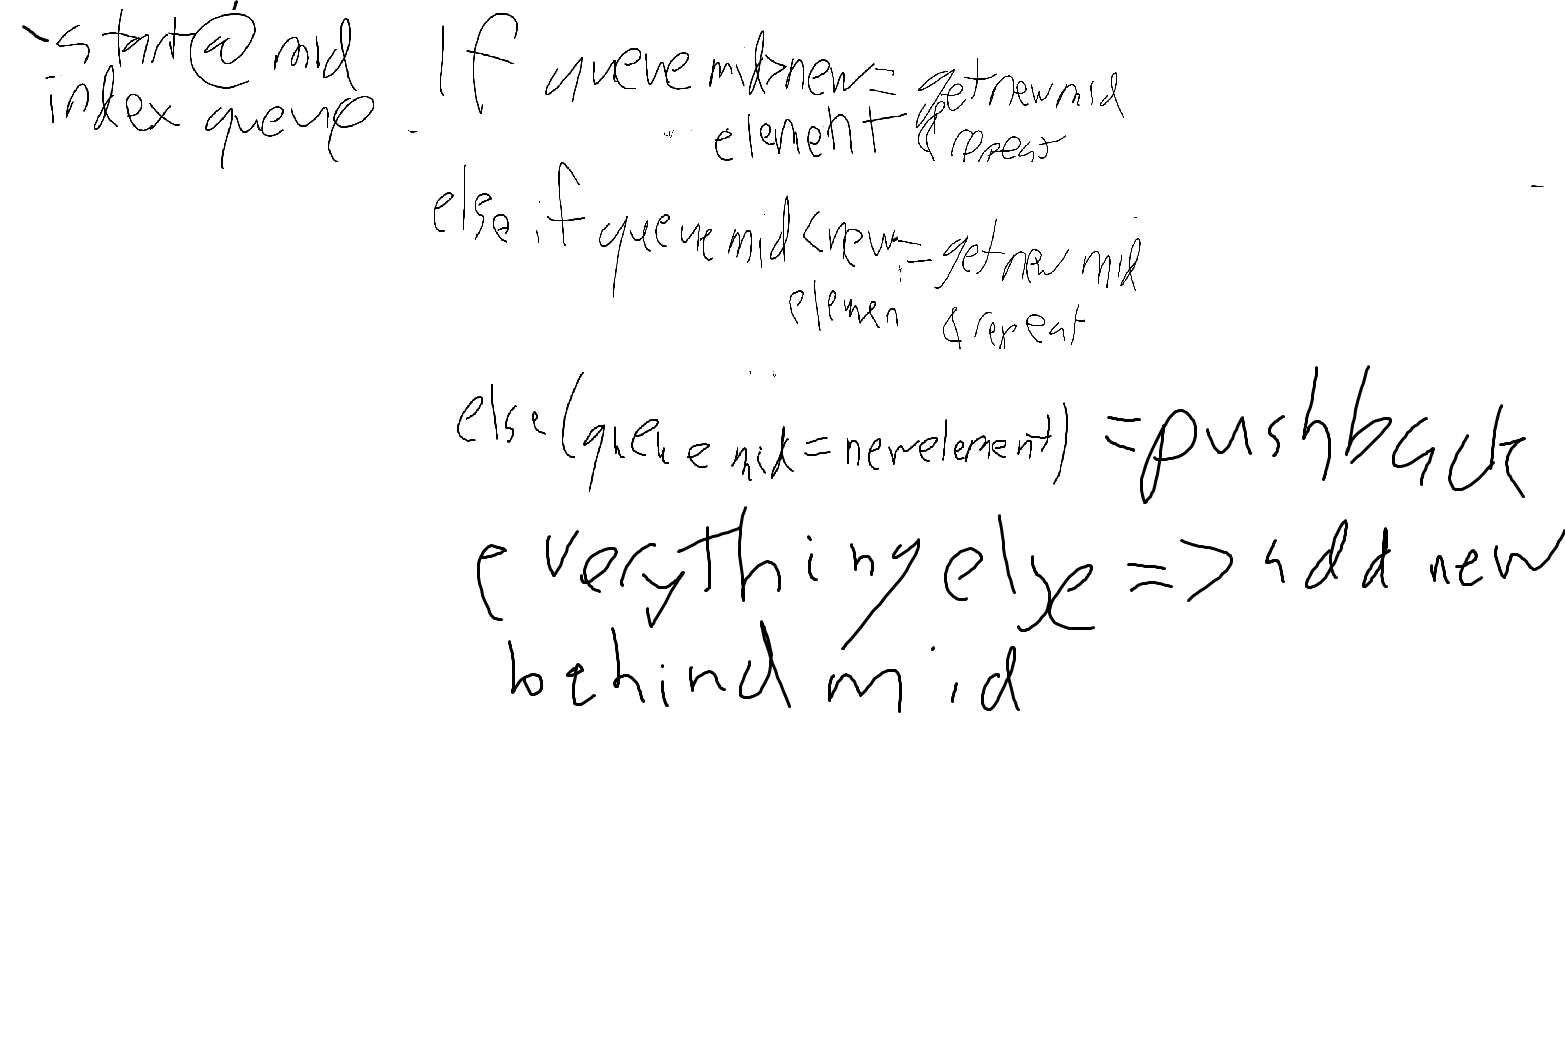 -start@mid
index queue
If queue mid>new= get new mid
element & repeat
else if queue mid<new:= get new mid
elemen & repeat
else(queue mid=newelement) =pushback
everything else=>add new
behind mid